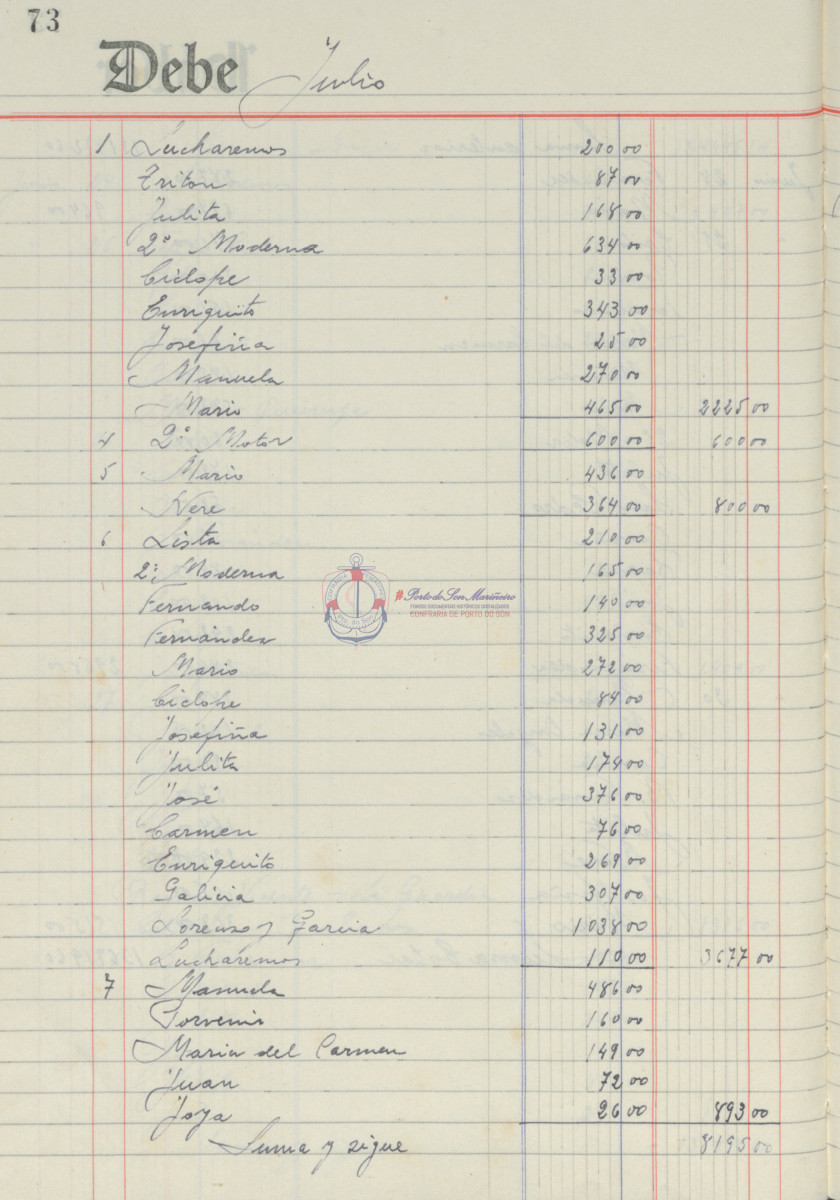 73
Debe Julio
1 Lucharemos 200 00
Triton 87 00
Julita 168 00
2ª Moderna 634 00
Ciclope 33 00
Enriquito 343 00
Josefiña 25 00
Manuela 270 00
Mario 465 00 2225 00
4 2º Motor 600 00 600 00
5 Mario 436 00
Nere 364 00 800 00
6 Lista 210 00
2ª Moderna 165 00
Fernando 140 00
Fernández 325 00
Mario 272 00
Ciclope 84 00
Josefiña 131 00
Julita 174 00
José 376 00
Carmen 76 00
Enriquito 269 00
Galicia 307 00
Lorenzo y Garcia 1038 00
Lucharemos 110 00 3677 00
7 Manuela 486 00
Porvenir 160 00
Maria del Carmen 149 00
Juan 72 00
Joya 26 00 893 00
Suma y sigue 8195 00
#Porto do Son Mariñeiro
FONDOS DOCUMENTAIS HISTÓRICOS DIXITALIZADOS
CONFRARIA DE PORTO DO SON